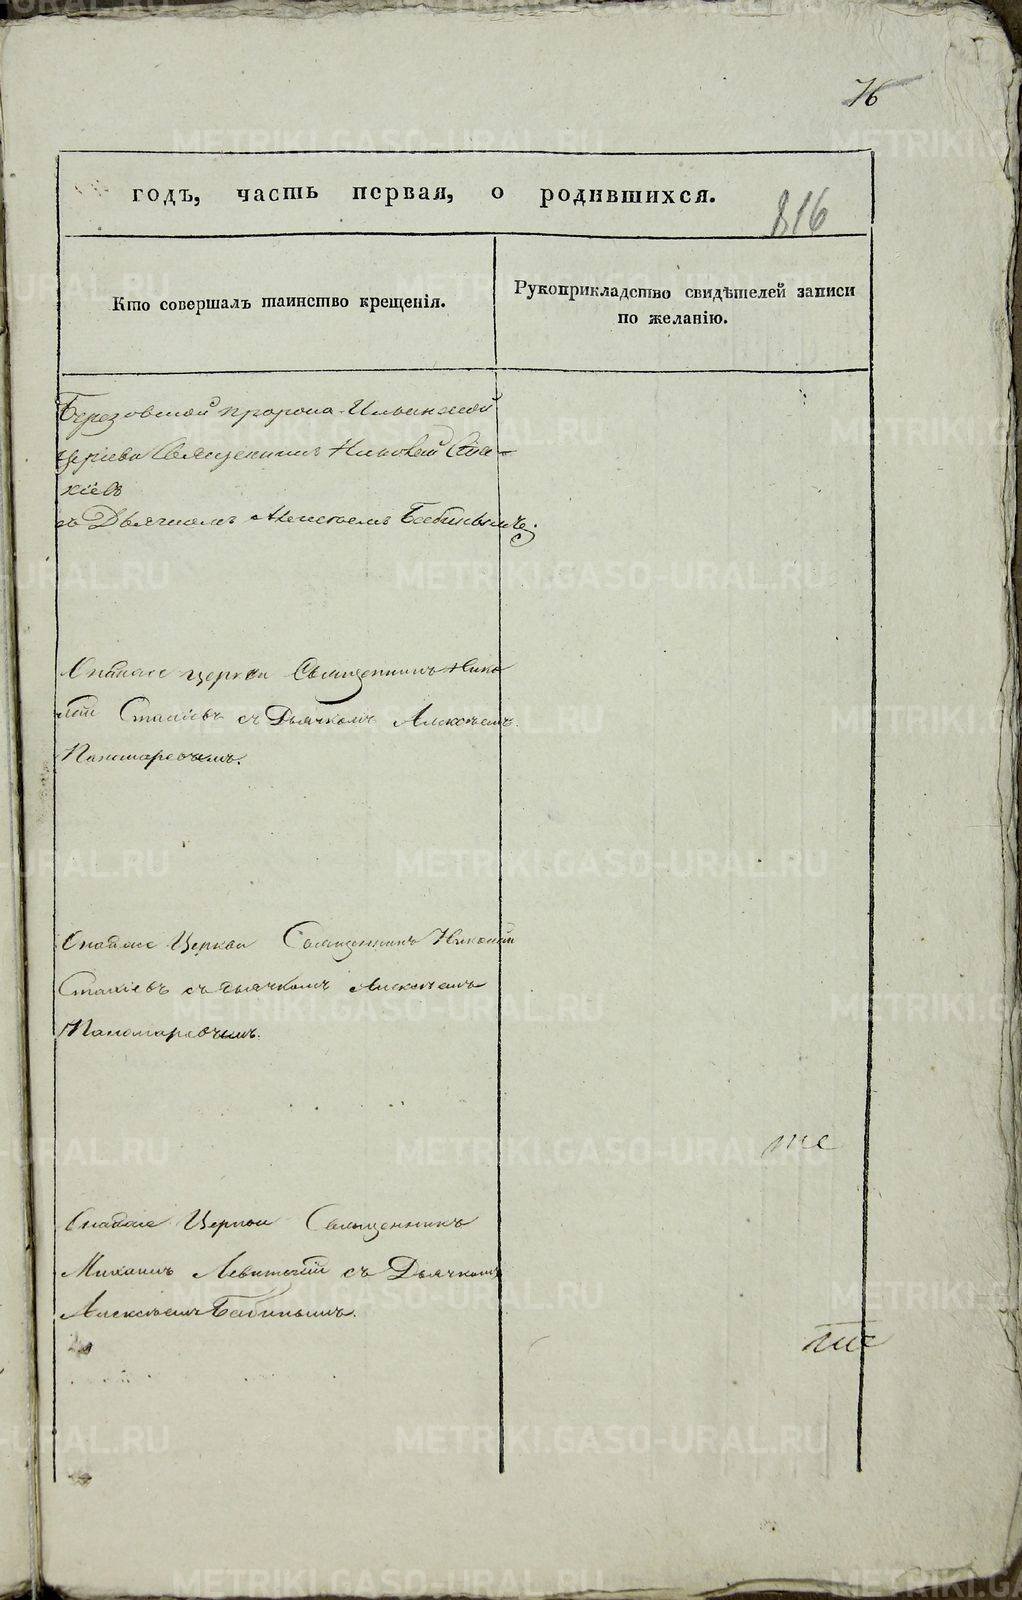 76
годъ, часть первая, о родившихся.
816
Кто совершалъ таинство крещенія.
Рукоприкладство свидѣтелей записи
по желанію.
Березовской пророко-Ильинской
церкви Священникъ Николай Ста-
хіевъ
съ Дьячкомъ Алексеемъ Бабиновымъ.
церкви Священникъ Нико
лай Стахіевъ съ Дьячкомъ Алексѣемъ
Пономаревымъ.
Церкви Священникъ Николай
Стахіевъ съ дьячкомъ Алексѣемъ
Пономаревымъ.
Церкви Священникъ
Михаилъ Левитскій съ Дьячкомъ
Алексѣемъ Бабиновымъ.
METRIKI.GASO-URAL.RU